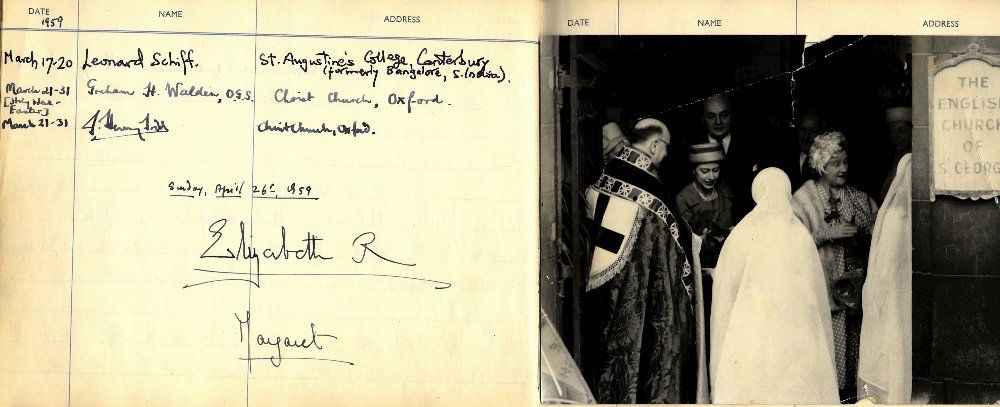 DATE NAME ADDRESS
1959
March 17-20 Leonard Schiff. St. Augustine's College, Canterbury
(formerly Bangalore, S. India).
March 21-31 Graham H. Walden, O.G.S. Christ Church, Oxford.
Easter]
March 21-31 Christ Church, Oxford.
Sunday, April 26th, 1959
Elizabeth R
Margaret
DATE NAME ADDRESS
THE
ENGLISH
CHURCH
OF
S. GEORG